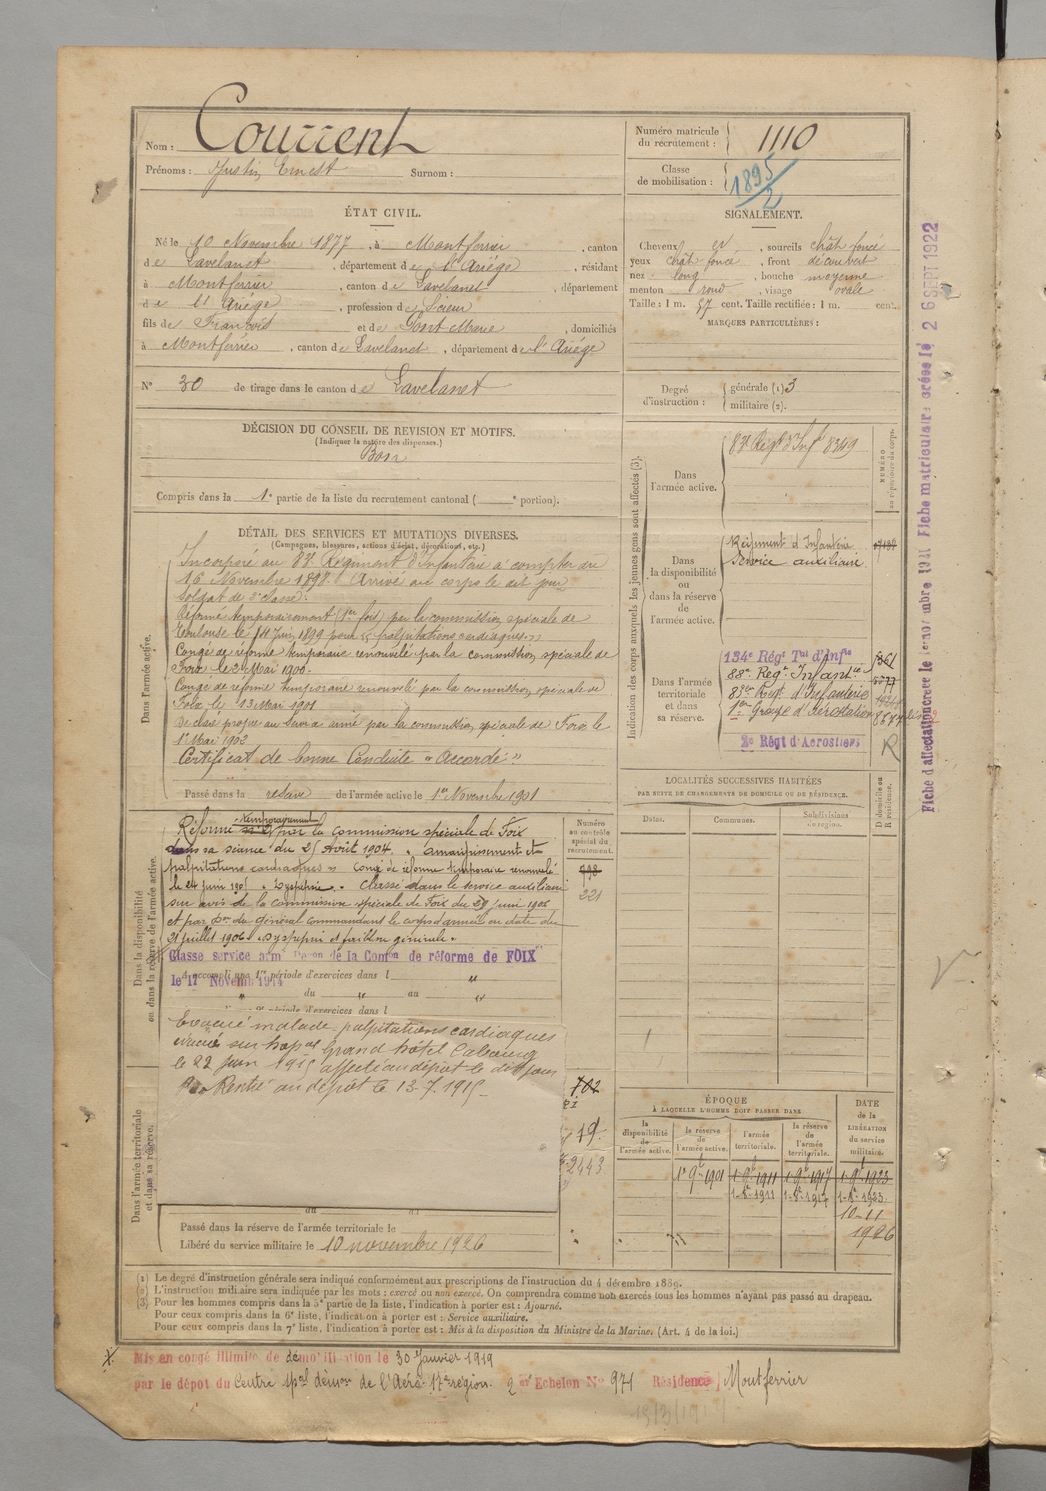 Nom : Courrent
Prénoms : Justin Ernest Surnom :
Numéro matricule du recrutement : 1110
Classe de mobilisation : 1895/2
ÉTAT CIVIL.
Né le 10 Novembre 1877, à Montferrier, canton
de Lavelanet, département de l'Ariége, résidant
à Montferrier, canton de Lavelanet, département
de l'Ariége, profession de Scieur
fils de François et de Pont Marie, domiciliés
à Montferrier, canton de Lavelanet, département de l'Ariége
N° 30 de tirage dans le canton de Lavelanet
SIGNALEMENT.
Cheveux et, sourcils chât foncé
yeux chât foncé, front découvert
nez long, bouche moyenne
menton rond, visage ovale
Taille : 1 m. 57 cent. Taille rectifiée : 1 m. cent.
MARQUES PARTICULIÈRES :
Degré d'instruction : générale (1) 3
militaire (2).
DÉCISION DU CONSEIL DE REVISION ET MOTIFS.
(Indiquer la nature des dispenses.)
Bon
Compris dans la 1e partie de la liste du recrutement cantonal ( e portion).
DÉTAIL DES SERVICES ET MUTATIONS DIVERSES.
(Campagnes, blessures, actions d'éclat, décorations, etc.)
Dans l'armée active.
Incorporé au 83e Régiment d'Infanterie à compter du
16 Novembre 1898 Arrivé au corps le dit jour
Soldat de 2e classe.
Réformé temporairement (1re fois) par la commission spéciale de
Toulouse le Juin 1899 pour « palpitations cardiaques »
Congé de réforme temporaire renouvelé par la commission spéciale de
Foix le 2 Mai 1900.
Congé de réforme temporaire renouvelé par la commission spéciale de
Foix le 13 Mai 1901
Déclaré propre au service armé par la commission spéciale de Foix le
1er Mai 1902
Certificat de bonne Conduite « Accordé »
Passé dans la réserve de l'armée active le 1er Novembre 1901
Dans la disponibilité ou dans la réserve de l'armée active.
Réformé temporairement par la commission spéciale de Foix
dans sa séance du 25 Août 1904. « amaigrissement et
palpitations cardiaques » congé de réforme temporaire renouvelé
le 24 juin 1905 « Dyspepsie ». Classé dans le service auxiliaire
sur avis de la commission spéciale de Foix du 29 juin 1906
et par Don du général commandant le corps d'armée en date du
21 juillet 1906 « Dyspepsie et faiblesse générale »
Classé service armé Don de la Comon de réforme de FOIX
le 17 Novemb 1914
A accompli une 1re période d'exercices dans l
du au
2e période d'exercices dans l
Evacué malade palpitations cardiaques
évacué sur hopal Grand hôtel Cabourg
le 22 juin 1915 affecté au dépôt le dit jour
Rentré au dépôt le 13.7.1915
Dans l'armée territoriale et dans sa réserve.
du au
Passé dans la réserve de l'armée territoriale le
Libéré du service militaire le 10 novembre 1926
Numéro au contrôle spécial du recrutement.
798
221
702
19
2443
Indication des corps auxquels les jeunes gens sont affectés (3).
NUMÉRO au répertoire du corps.
Dans l'armée active.
83e Régt d'Infie 8349
Dans la disponibilité ou dans la réserve de l'armée active.
Régiment d'Infanterie
Service auxiliaire
Dans l'armée territoriale et dans sa réserve.
134e Régt Tal d'Infie
88e Regt Infantie
83eme Régt d'Infanterie
1er Groupe d'aérostation
2e Régt d'Aerostiers R
LOCALITÉS SUCCESSIVES HABITÉES
PAR SUITE DE CHANGEMENTS DE DOMICILE OU DE RÉSIDENCE.
Dates. Communes. Subdivisions de région. D domicile ou R résidence.
ÉPOQUE
À LAQUELLE L'HOMME DOIT PASSER DANS
la disponibilité de l'armée active. la réserve de l'armée active. l'armée territoriale. la réserve de l'armée territoriale.
DATE de la LIBÉRATION du service militaire.
1er 9bre 1901 1-9bre 1911 1-9bre 1917 1-9bre 1923
1-8bre 1911 1-8bre 1917 1-8bre 1923
10-11
1926
(1) Le degré d'instruction générale sera indiqué conformément aux prescriptions de l'instruction du 4 décembre 1889.
(2) L'instruction militaire sera indiquée par les mots : exercé ou non exercé. On comprendra comme non exercés tous les hommes n'ayant pas passé au drapeau.
(3) Pour les hommes compris dans la 5e partie de la liste, l'indication à porter est : Ajourné.
Pour ceux compris dans la 6e liste, l'indication à porter est : Service auxiliaire.
Pour ceux compris dans la 7e liste, l'indication à porter est : Mis à la disposition du Ministre de la Marine. (Art. 4 de la loi.)
Mis en congé illimité de démobilisation le 30 Janvier 1919
par le dépôt du Centre spal démon de l'Aéro 17e région. 2e Echelon N° 971 Résidence Montferrier
Fiche matriculaire créée le 26 SEPT 1922